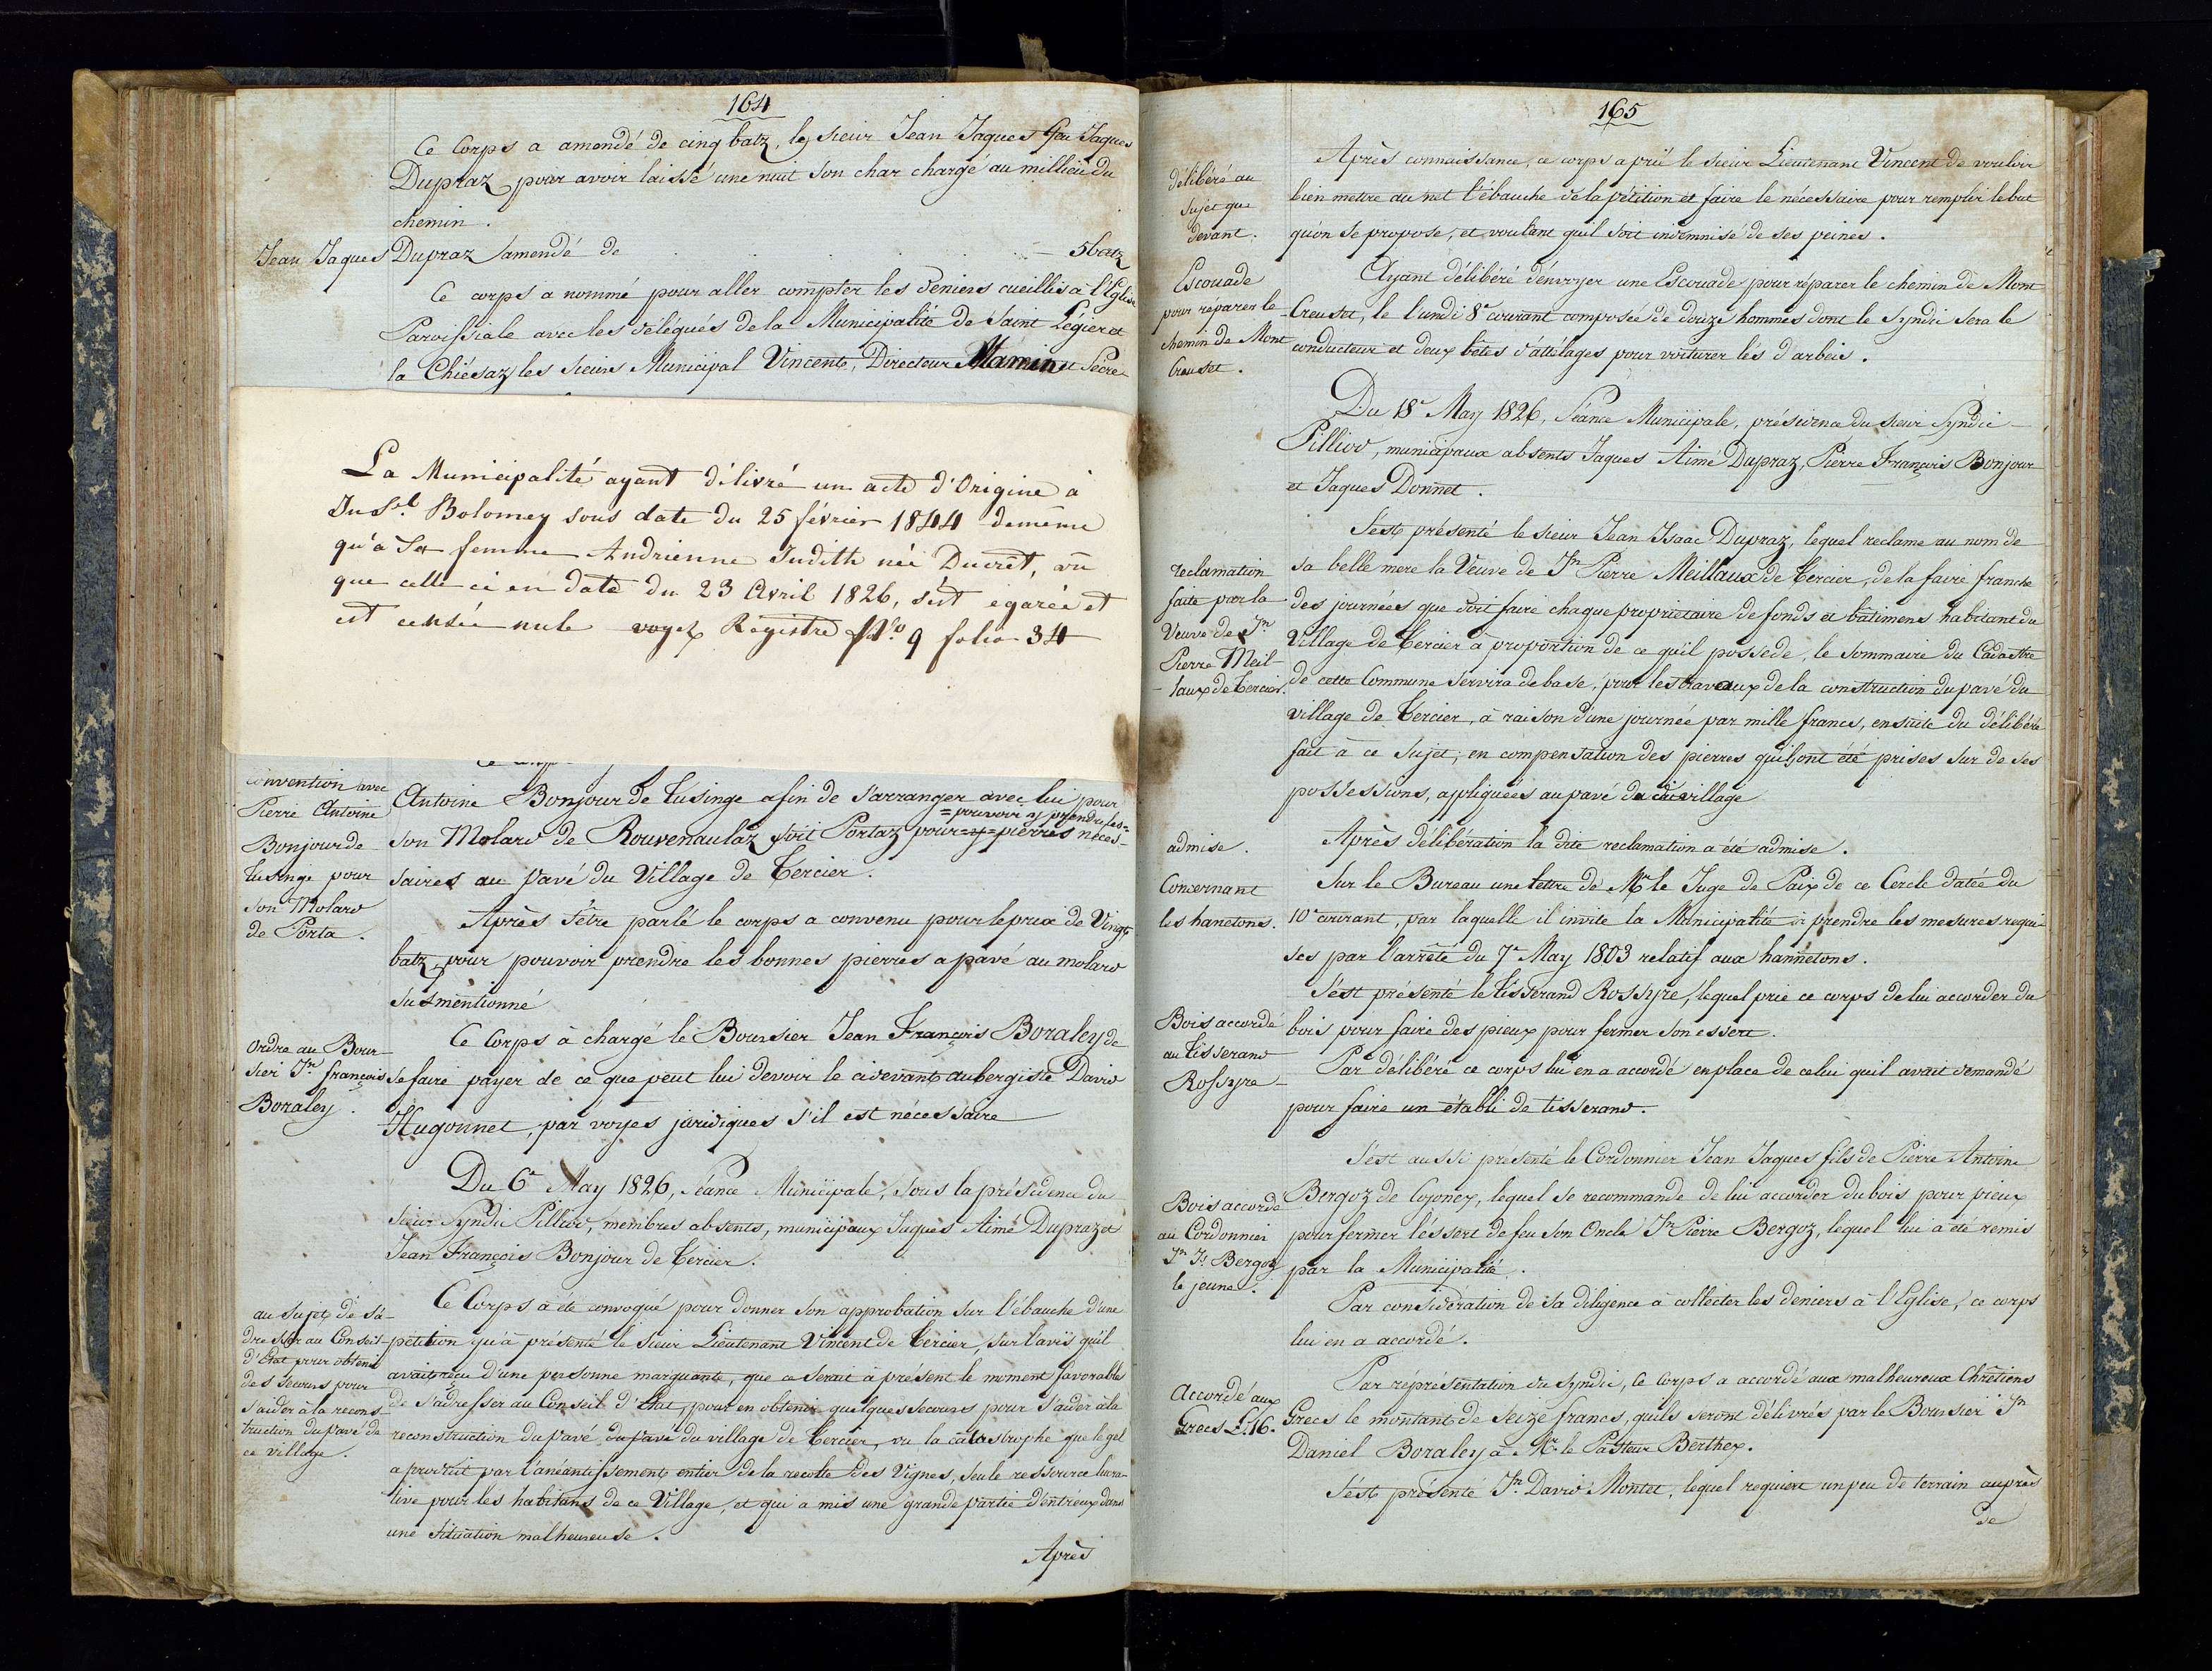 164
Ce Corps a amendé de cinq batz, le sieur Jean Jaques feu Jaques
Dupraz pour avoir laissé une nuit son char chargé au millieu du
chemin.
Jean Jaques Dupraz amendé de 5 batz
Ce corps a nommé pour aller compter les deniers cueillis à l'Eglise
Paroissiale avec les délégués de la Municipalité de Saint Légier et
la Chiésaz, les sieurs Municipal Vincent, Directeur Mamin et Sécre-
La Municipalité ayant délivré un acte d'Origine à
Bolomey sous date du 25 février 1844 demême
qu'à sa femme Andrienne Judith née Ducrêt, vu
que celle ci en date du 23 Avril 1826, s'est égarée et
est censée nule voyez Registre N.o 9 folio 34
convention avec
Pierre Antoine
Bonjour de
Tusinge pour
son Molard
de Porta.
Antoine Bonjour de Tusinge afin de s'arranger avec lui pour
= pouvoir y prendre les =
son Molard de Rouvenaulaz soit Portaz pour =y= pierres néces-
saires au Pavé du Village de Tercier.
Après s'être parlé le corps a convenu pour le prix de Vingt
batz, pour pouvoir prendre les bonnes pierres a pavé au molard
susmentionné
Ordre au Bour-
sier Jn françois
Boraley.
Ce Corps à chargé le Boursier Jean François Boraley de
se faire payer de ce que peut lui devoir le cidevant aubergiste David
Hugonnet, par voyes juridiques s'il est nécessaire
Du 6e May 1826, Séance Municipale, sous la présidence du
sieur Syndic Pilliod, membres absents, municipaux Jaques Aimé Dupraz et
Jean François Bonjour de Tercier.
au sujet de s'a-
dresser au Conseil
d'Etat pour obtenir
des secours pour
s'aider à la recons-
truction du pavé de
ce village.
Ce Corps a été convoqué pour donner son approbation sur l'ébauche d'une
pétition qu'à présenté le sieur Lieutenant Vincent de Tercier, sur l'avis qu'il
avait reçu d'une personne marquante, que ce serait à présent le moment favorable
de s'adresser au Conseil d'Etat, pour en obtenir quelques secours pour s'aider à la
reconstruction du pavé du pavé du village de Tercier, vu la catastrophe que le gel
a produit par l'anéantissement entier de la recolte des Vignes, seule ressource lucra-
tive pour les habitans de ce Village, et qui a mis une grande partie d'entr'eux dans
une situation malheureuse.
Après
165
délibéré au
sujet que
devant.
Après connaissance, ce corps a prié le sieur Lieutenant Vincent de vouloir
bien mettre au net l'ébauche de la pétition et faire le nécessaire pour remplir le but
qu'on se propose, et voulant quil soit indemnisé de ses peines.
Escouade
pour réparer le
chemin de Mont
Creuset.
Ayant délibéré d'envoyer une Escouade pour réparer le chemin de Mont
Creuset, le lundi 8e courant composée de douze hommes dont le Syndic sera le
conducteur et deux bêtes d'attélages pour voiturer les d'arbeis.
Du 18e May 1826, Séance Municipale, présidence du sieur Syndic
Pilliod, municipaux absents Jaques Aimé Dupraz, Pierre François Bonjour
et Jaques Donnet.
reclamation
faite par la
Veuve de Jn
Pierre Meil-
laux de Tercier.
S'est présenté le sieur Jean Isaac Dupraz, lequel reclame au nom de
sa belle mere la Veuve de Jn Pierre Meillaux de Tercier, de la faire franche
des journées que doit faire chaque propriétaire de fonds et bâtimens habitant du
Village de Tercier à proportion de ce qu'il possede, le sommaire du Cadastre
de cette Commune servira de base, pour les travaux de la construction du pavé du
village de Tercier, à raison d'une journée par mille francs, ensuite du délibéré
fait à ce sujet, en compensation des pierres qui ont été prises sur de ses
possessions, appliquées au pavé du dit village
admise.
Après délibération la dite reclamation a été admise.
Concernant
les hanetons.
Sur le Bureau une lettre de Mr le Juge de Paix de ce Cercle datée du
10e courant, par laquelle il invite la Municipalité à prendre les mesures requi-
ses par l'arrêté du 7e May 1803 relatif aux hannetons.
Bois accordé
au Tisserand
Rossyre
S'est présenté le Tisserand Rossyre, lequel prie ce corps de lui accorder du
bois pour faire des pieux pour fermer son essert.
Par délibéré ce corps lui en a accordé en place de celui qu'il avait demandé
pour faire un établi de tisserand.
Bois accordé
au Cordonnier
Jn Js Bergoz
le jeune.
S'est aussi présenté le Cordonnier Jean Jaques fils de Pierre Antoine
Bergoz de Cojonex, lequel se recommande de lui accorder du bois pour pieux
pour fermer l'éssert de feu son Oncle Jn Pierre Bergoz, lequel lui a été remis
par la Municipalité.
Par considération de sa diligence à collecter les deniers à l'Eglise, ce corps
lui en a accordé.
Accordé aux
Grecs L. 16.
Par réprésentation du Syndic, ce Corps a accordé aux malheureux Chrétiens
Grecs le montant de seize francs, qu'ils seront délivrés par le Boursier Jn
Daniel Boraley à Mr le Pasteur Berthex.
S'est présenté Jn David Montet, lequel requiert un peu de terrain auprès
de